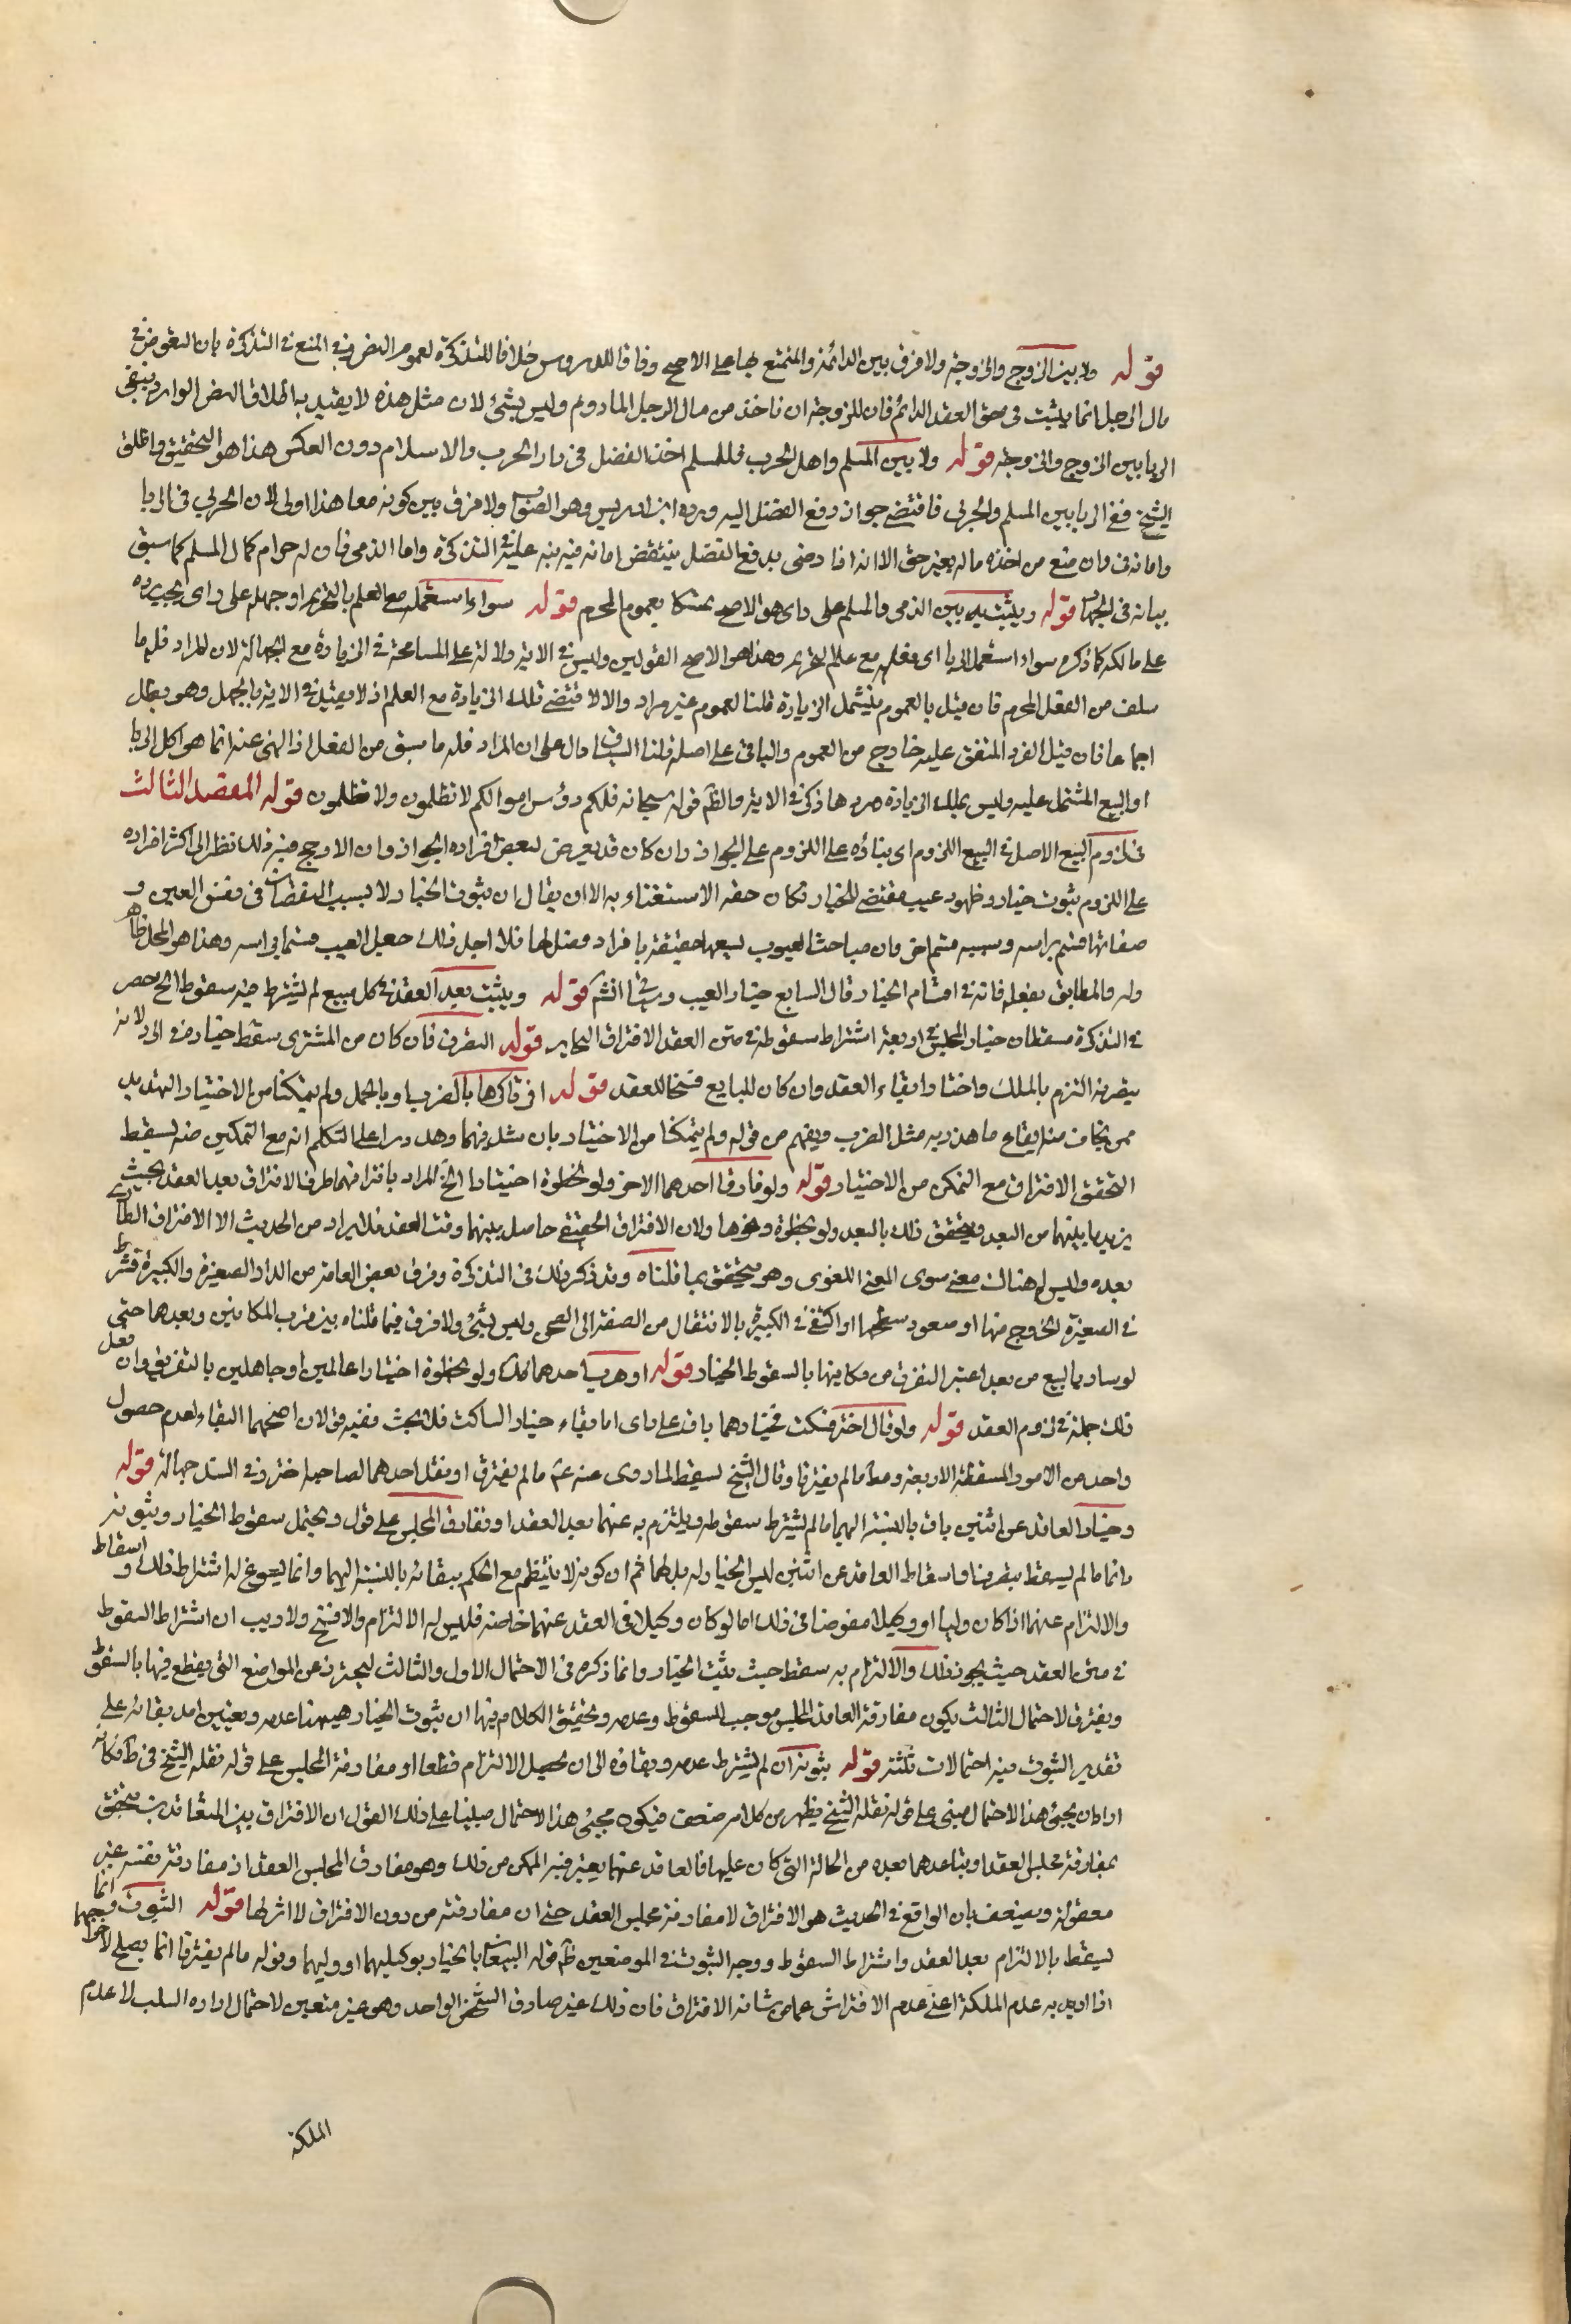 قوله ولا بين الزوج والزوجة ولا فرق بين الدائمة والمتمتع بها على الاصح وفاقا للدروس خلافا للتذكرة لعموم النص في المنع في التذكرة بان التفويض في
مال الرجل انما يثبت في حق العقد الدائم فان للزوجة ان تاخذ من مال الرجل المادوم وليس بشئ لان مثل هذه لا يقيد به اطلاق النص الوارد بنفي
الربا بين الزوج والزوجة قوله ولا بين المسلم واهل الحرب فللمسلم اخذ الفضل في دار الحرب والاسلام دون العكس هذا هو التحقيق واطلق
الشيخ نفي الربا بين المسلم والحربي فاقتضى جواز دفع الفضل اليه ورده ابن ادريس وهو الصواب ولا فرق بين كونه معاهدا اولى لان الحربي في الربا
وامانه وان منع من اخذه ماله بغير حق الا انه اذا رضى بدفع الفضل ينتقض امانه فيه نبه عليه في التذكرة واما الذمي فان له حرام كمال المسلم كما سبق
بيانه في الجهاد قوله ويثبت بين الذمي والمسلم على راى هو الاصح تمسكا بعموم المحرم قوله سواء استعمله مع العلم بالتحريم او جهله على راى يجب رده
على مالكه كما ذكره سواء استعمل الربا اى فعله مع علم التحريم وهذا هو الاصح القولين وليس في الاية دلالة على المسامحة في الزيادة مع الجهالة لان المراد فله ما
سلف من الفعل المحرم فان قيل بالعموم فيشمل الزيادة قلنا العموم غير مراد والا لاقتضى تلك الزيادة مع العلم اذ لا تقييد في الاية بالجهل وهو بطل
اجماعا فان قيل الفرد المتفق عليه خارج من العموم والباقي على اصله قلنا السياق دال على ان المراد فله ما سبق من الفعل اذ النهى عنه انما هو اكل الربا
او البيع المشتمل عليه وليس بملك الزيادة ورد هاذكر في الاية والظم قوله سبحانه فلكم رؤس اموالكم لا تظلمون ولا تظلمون قوله المقصد الثالث
في لزوم البيع الاصل في البيع اللزوم اى بناؤه على اللزوم على الجواز وان كان قد يعرض لبعض افراده الجواز وان الارجح فيه ذلك نظرا الى اكثر افراده
على اللزوم ثبوت خيار وظهور عيب مقتضى للخيار فكان حقه الاستغناء به الا ان يقال ان ثبوت الخيار لا بسبب النقصان في نفس العين و
صفاتها قسم براسه وبسببه قسم اخر وان مباحث العيوب لسعها حقيقة بافراد فصل لها فلاجل ذلك جعل العيب قسما براسه وهذا هو المحل ظاهر
وله والمطابق بفعله فانه في اقسام الخيار قال السابع خيار العيب وسياتي انشم قوله ويثبت بعد العقد في كل مبيع لم يشترط فيه سقوط الخ حصر
في التذكرة مسقطات خيار المجلس في اربعة اشتراط سقوطه في متن العقد الافتراق التخاير قوله التصرف فان كان من المشترى سقط خياره في الاولى لانه
بتصرفه التزم بالملك واختار ابقاء العقد وان كان للبايع فسخا للعقد قوله افرقا كرها بالضرب او بالحمل ولم يتمكنا من الاختيار التهديد
ممن يخاف منه ايقاع ما هدد به مثل الضرب ويفهم من قوله ولم يتمكنا من الاختيار بان مثل فيهما وهل درا على التكلم انه مع التمكين منه يسقط
لتحقق الافتراق مع التمكن من الاختيار قوله ولو فارق احدهما الاخر ولو بخطوة اختيارا الخ المراد بافتراقهما طرف الافتراق بعد العقد بحيث
يزيد ما بينهما من البعد ويتحقق ذلك بالبعد ولو بخطوة ونحوها ولان الافتراق الحقيقي حاصل بينهما وقت العقد فلا يراد من الحديث الا الافتراق الطارى
بعده وليس هناك معنى سوى المعنى اللغوى وهو يتحقق بما قلناه وقد ذكر ذلك في التذكرة وفرق بعض العامة من الدار الصغيرة والكبيرة فشرط
في الصغيرة الخروج منها او صعود سطحها واكتفى في الكبيرة بالانتقال من الصفة الى الصحن وليس بشئ ولا فرق فيما قلناه بين قرب المكانين وبعدهما حتى
لو ساد بالبيع من بعد اعتبر التفرق من مكانيها بالسقوط الخيار قوله او هرب احدهما كك ولو بخطوة اختيارا عالمين او جاهلين بالتفريق وان فعل
ذلك جملة في لزوم العقد قوله ولو قال اختر فسكت فخيارهما باق على راى اما بقاء خيار الساكت فلا بحث فيه قولان اصحهما البقاء لعدم حصول
واحد من الامور المسقطة الاربعة ومط ما لم يفترقا وقال الشيخ يسقط لما روى عنه عم ما لم يفترقا او يقل احدهما لصاحبه اختر وفي السند جهالة قوله
وخيار العاقد عن اثنين باق بالنسبة اليهما ما لم يشترط سقوطه ويلتزم به عنهما بعد العقد او تفارق المجلس على قول ويحتمل سقوط الخيار وثبوته
دائما ما لم يسقط بتصرفنا واسقاط العاقد عن اثنين ليس الخيار له بل لهما ثم ان كونه لا ينتظم مع الحكم ببقائه بالنسبة اليهما وانما يسوغ له اشتراط ذلك و اسقاط
والالتزام عنهما اذا كان وليا او وكيلا مفوضا في ذلك اما لو كان وكيلا في العقد عنهما خاصة فليس له الالتزام والافتح ولا ريب ان اشتراط السقوط
في متن العقد حيث يجوز ذلك والالتزام به سقط حيث يثبت الخيار وانما ذكره في الاحتمال الاول والثالث ليحترز عن المواضع التي يقطع فيها بالسقوط
ويفترق الاحتمال الثالث بكون مفارقة العاقد المجلس موجب للسقوط وعدمه وتحقيق الكلام فيها ان ثبوت الخيار هيهنا عدمه وتعيين امد بقائه على
تقدير الثبوت فيه احتمالات ثلثة قوله ثبوته ان لم يشترط عدمه وبقاؤه الى ان يحصل الالتزام قطعا او مفارقة المجلس على قوله نقله الشيخ في ط فكانه
اراد ان يجئ هذا الاحتمال مبنى على قوله نقله الشيخ يظهر من كلامه ضعف فيكون مجئ هذا الاحتمال مبنيا على ذلك القول ان الافتراق بين المتعاقدين يتحقق
بمفارقة مجلس العقد او بتباعدهما بعده من الحالة التي كان عليها فالعاقد عنهما يعتبر فيه الممكن من ذلك وهو مفارق المجلس العقد اذ مفارقته نفسه غير
معقولة ويضعف بان الواقع في الحديث هو الافتراق لا مفارقة مجلس العقد حتى ان مفارقته من دون الافتراق لا اثر لها قوله الثبوت فيهما انما
يسقط بالالتزام بعد العقد واشتراط السقوط ووجه الثبوت في الموضعين ظم قوله البيعان بالخيار بوكيليهما او وليهما وقوله ما لم يفترقا انما يصلح
اذا اريد به عدم الملكة اعنى عدم الافتراق عما من شانه الافتراق فان ذلك غير صادق الشخص الواحد وهو غير متعين لاحتمال اراده السلب لا عدم
الملكة